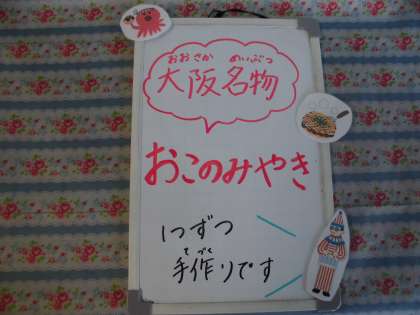 おおさか めいぶつ
大阪名物
おこのみやき
1つずつ
てづく
手作りです